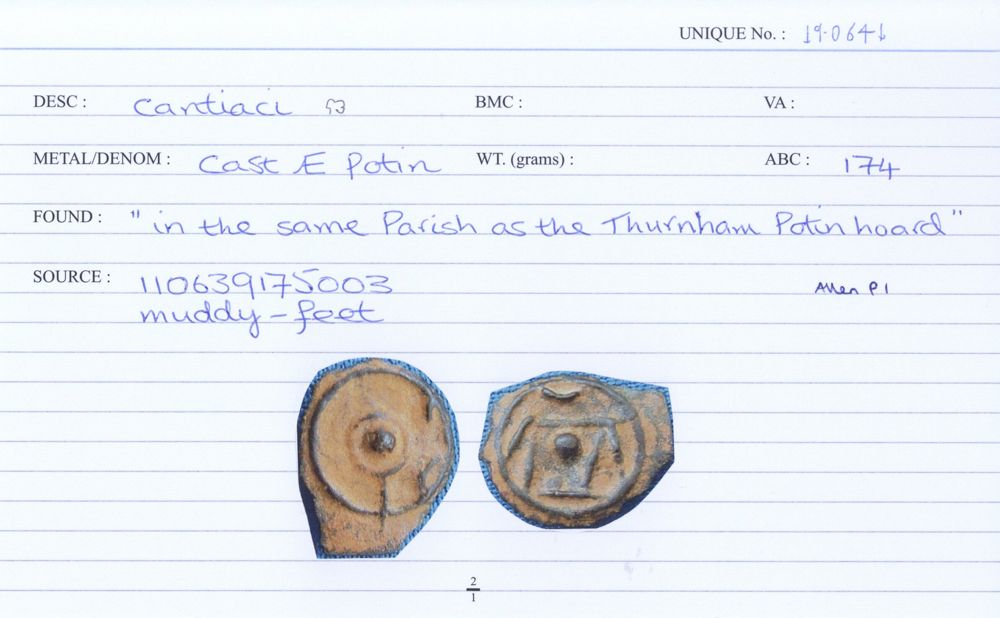 UNIQUE No. : 19.0641
DESC : Cantiaci BMC : VA :
METAL/DENOM : Cast Æ Potin WT. (grams) : ABC : 174
FOUND : "in the same Parish as the Thurnham Potin hoard"
SOURCE : 110639175003 Allen P1
muddy-feet
2
1